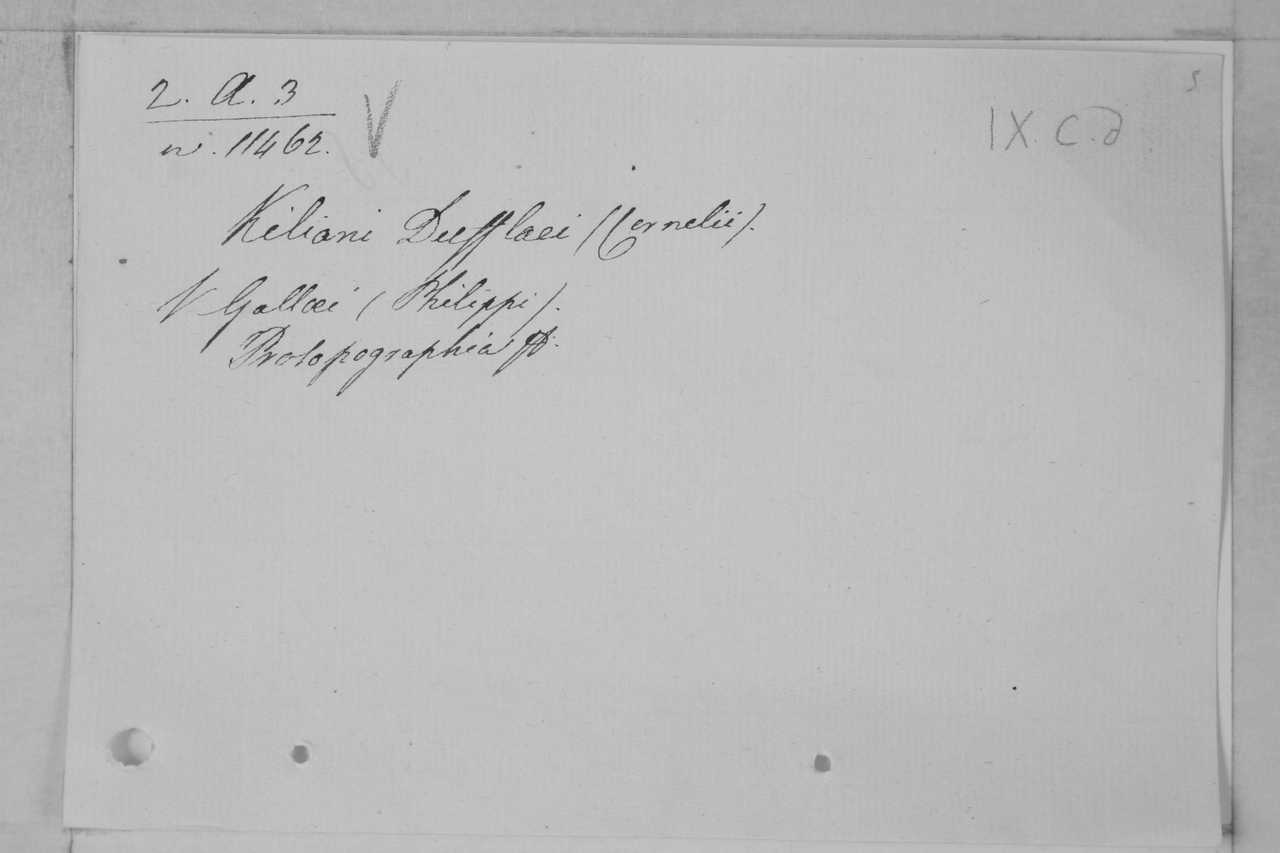 5
2. A. 3
IX. C. d
n. 11462.
V
Kiliani Dufflaei (Cornelii).
V Gallaei (Philippi).
Prosopographia